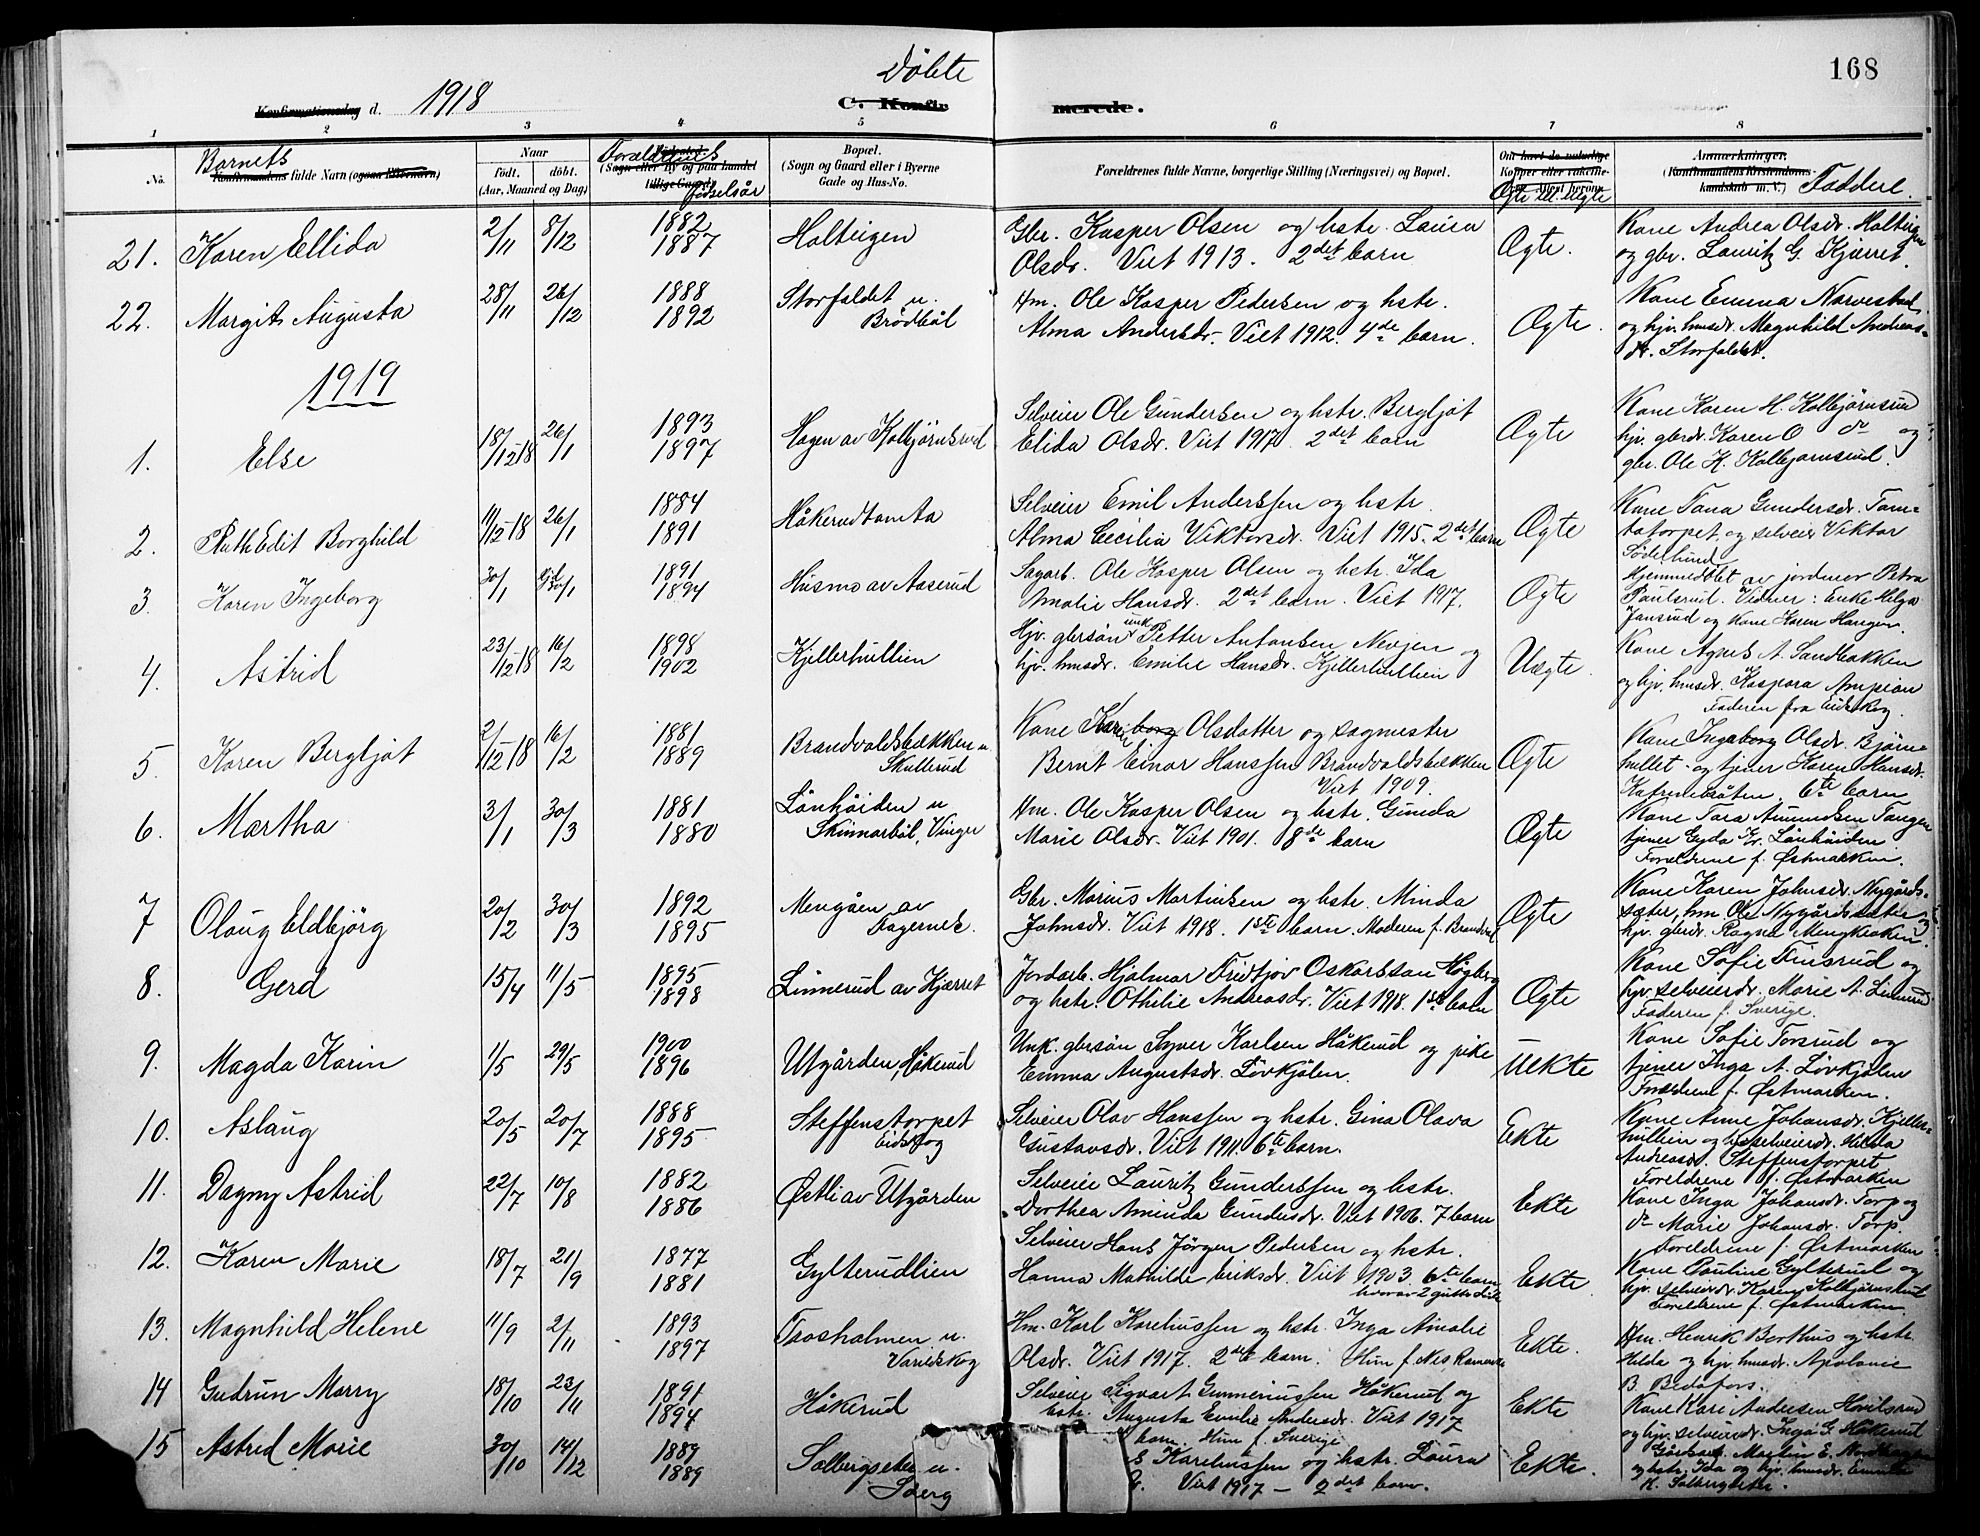 168
1918
Døbte
Konfirmationsdag d.
C. Konfir
merede.
1 2 3 4 5 6 7 8
No.
Barnets
Konfirmandens fulde Navn (ogsaa Efternavn)
Naar
født. døbt.
(Aar, Maaned og Dag)
Forældrenes
(Sogn eller By og paa Landet
tillige Gaard)
fødselsår
Bopæl.
(Sogn og Gaard eller i Byerne
Gade og Hus-No.
Forældrenes fulde Navne, borgerlige Stilling (Næringsvei) og Bopæl.
Om havt de naturlige
Kopper eller vakcine-
Ægte el. Uægte
Anmærkninger.
(Konfirmandens Kristendoms-
kundskab m. V.) Faddere.
21. Karen Ellida 2/11 8/12 1882 1887 Holteigen
Gbr. Kasper Olsen og hstr. Laura
Olsdr. Viet 1913. 2det barn
Ægte.
Kone Andrea Olsdr. Holteigen
og gbr. Lauritz G. Kjærret.
22. Margit Augusta 28/11 26/12 1888 1892 Storfaldet u.
Brødbøl
Hm. Ole Kasper Pedersen og hstr.
Alma Andersdr. Viet 1912. 4de barn.
Ægte.
Kone Emma Norvestad
og hjv. husdr. Magnhild Andreas-
dr. Storfaldet.
1919
1. Else 18/12-18 26/1 1893 1897 Hagen av Kolbjørnsrud
Selveier Ole Gundersen og hstr. Bergljot
Elida Olsdr. Viet 1917. 2det barn
Ægte
Kone Karen H. Kolbjørnsrud
hjv. gbrdr. Karen O do og
gbr. Ole K. Kolbjørnsrud.
2. Ruth Edit Borghild 11/12-18 26/1 1884 1891 Håkerudtomta
Selveier Emil Anderssen og hstr.
Alma Cecilia Viktorsdr. Viet 1915. 2det barn
Ægte
Kone Tana Gundersdr. Tom-
tatorpet, og selveier Viktor
Søderlund
3. Karen Ingeborg 30/1 30/1 1891 1894 Husmo av Aaserud
Sagarb. Ole Kasper Olsen og hstr. Ida
Amalie Hansdr. 2det barn. Viet 1917.
Ægte
Hjemmedøbt av jordmor Petra
Paulsrud. Vidner: Enke Helga
Jansrud og Kone Karen Haugen.
4. Astrid 23/12-18 16/2 1898 1902 Kjellerhullien
Hjv. gbrsøn unk. Petter Antonsen Nevjen og
hjv. husdr. Emilie Hansdr. Kjellerhullien
Uægte.
Kone Agnes A. Sandbakken
og hjv. husdr. Kaspara Ampian
Faderen fra Eidskog.
5. Karen Bergljot 2/12-18 16/2 1881 1889 Brandvoldsbækken u.
Skullerud
Kone Karen Olsdatter og sagmester
Bernt Einar Hanssen Brandvoldsbækken
Viet 1909.
Ægte
Kone Ingeborg Olsdr. Bjørne-
hullet og tjener Karen Hansdr.
6te barn
6. Martha 3/1 30/3 1881 1880 Lønhøiden u.
Skinnarbøl, Vinger
Hm. Ole Kasper Olsen og hstr. Gunda
Marie Olsdr. Viet 1901. 8de barn
Ægte
Kone Tora Amundsen Tangen
tjener Gyda Kr. Lønhøiden.
Foreldrene f. Østmarken.
7 Olaug Eldbjørg 20/2 30/3 1892 1895 Mengåen av
Fagernes.
Gbr. Marius Martinsen og hstr. Minda
Johnsdr. Viet 1918. 1ste barn. Moderen f. Brandval
Ægte
Kone Karen Johnsdr. Nygårds-
sæter, hm. Ole Nygårdssæter og
hjv. gbrdr. Ragna Mengkroken.
8. Gerd 15/4 11/5 1895 1898 Linnerud av Kjærret
Jordarb. Hjalmar Fridtjov Oskarssan Høgberg
og hstr. Othilie Andreasdr. Viet 1918. 1ste barn
Ægte
Kone Sofie Finsrud og
hjv. selveierdr. Marie A. Linnerud
Faderen f. Sverige.
9. Magda Karin 1/5 29/5 1900 1896 Utgården, Håkerud
Unk. gbrsøn Syver Karlsen Håkerud og pike
Emma Augustsdr. Løvkjølen.
Uekte
Kone Sofie Torsrud og
tjener Inga A. Løvkjølen
Foreldrene f. Østmarken.
10. Aslaug 20/5 20/7 1888 1895 Steffenstorpet
Eidskog
Selveier Olav Hanssen og hstr. Gina Olava
Gustavsdr. Viet 1911. 6te barn.
Ekte
Kone Anne Johansdr. Kjeller-
hullien og selveierdr. Hilda
Andreasdr. Steffenstorpet
Foreldrene f. Østmarken
11. Dagny Astrid 22/7 10/8 1882 1886 Østli av Utgården
Selveier Lauritz Gunderssen og hstr.
Dorthea Aminda Gundersdr. Viet 1906. 7 barn
Ekte
Kone Inga Johansdr. Torp og
do Marie Johansdr. Torp.
Foreldrene f. Østmarken
12. Karen Marie 18/7 21/9 1877 1881 Gylterudlien
Selveier Hans Jørgen Pedersen og hstr.
Hanna Mathilde Eriksdr. Viet 1903. 6te barn
hvorav 2 gutte døde
Ekte.
Kone Pauline Gylterud og
hjv. selveierdr. Karen Kolbjørnsrud
Foreldrene f. Østmarken
13. Magnhild Helene 11/9 2/11 1893 1897 Taasholmen u.
Varildskog
Hm. Karl Kareliussen og hstr. Inga Amalie
Olsdr. Viet 1917. 2det barn. Hun f. Nes Romerike
Ekte.
Hm. Henrik Berthus og hstr.
Hilda og hjv. husdr. Apolonie
B. Bedafors.
14 Gudrun Marry 18/10 23/11 1891 1894 Håkerud
Selveier Sigvart Gunneriussen Håkerud og
hstr. Augusta Emilie Andersdr. Viet 1917
barn. Hun f. Sverige
Ekte
Kone Kari Andersen Hovilsrud
og hjv. selveierdr. Inga G. Håkerud
15 Astrid Marie 30/10 14/12 1889 1889 Solbergseter u.
Soberg
Kareliussen og hstr. Laura
Viet 1917 – 2det barn.
Ekte.
Gårdbest. Martin E.
og hstr. Ida og hjv. husdr. Emilie
K. Solbergseter.